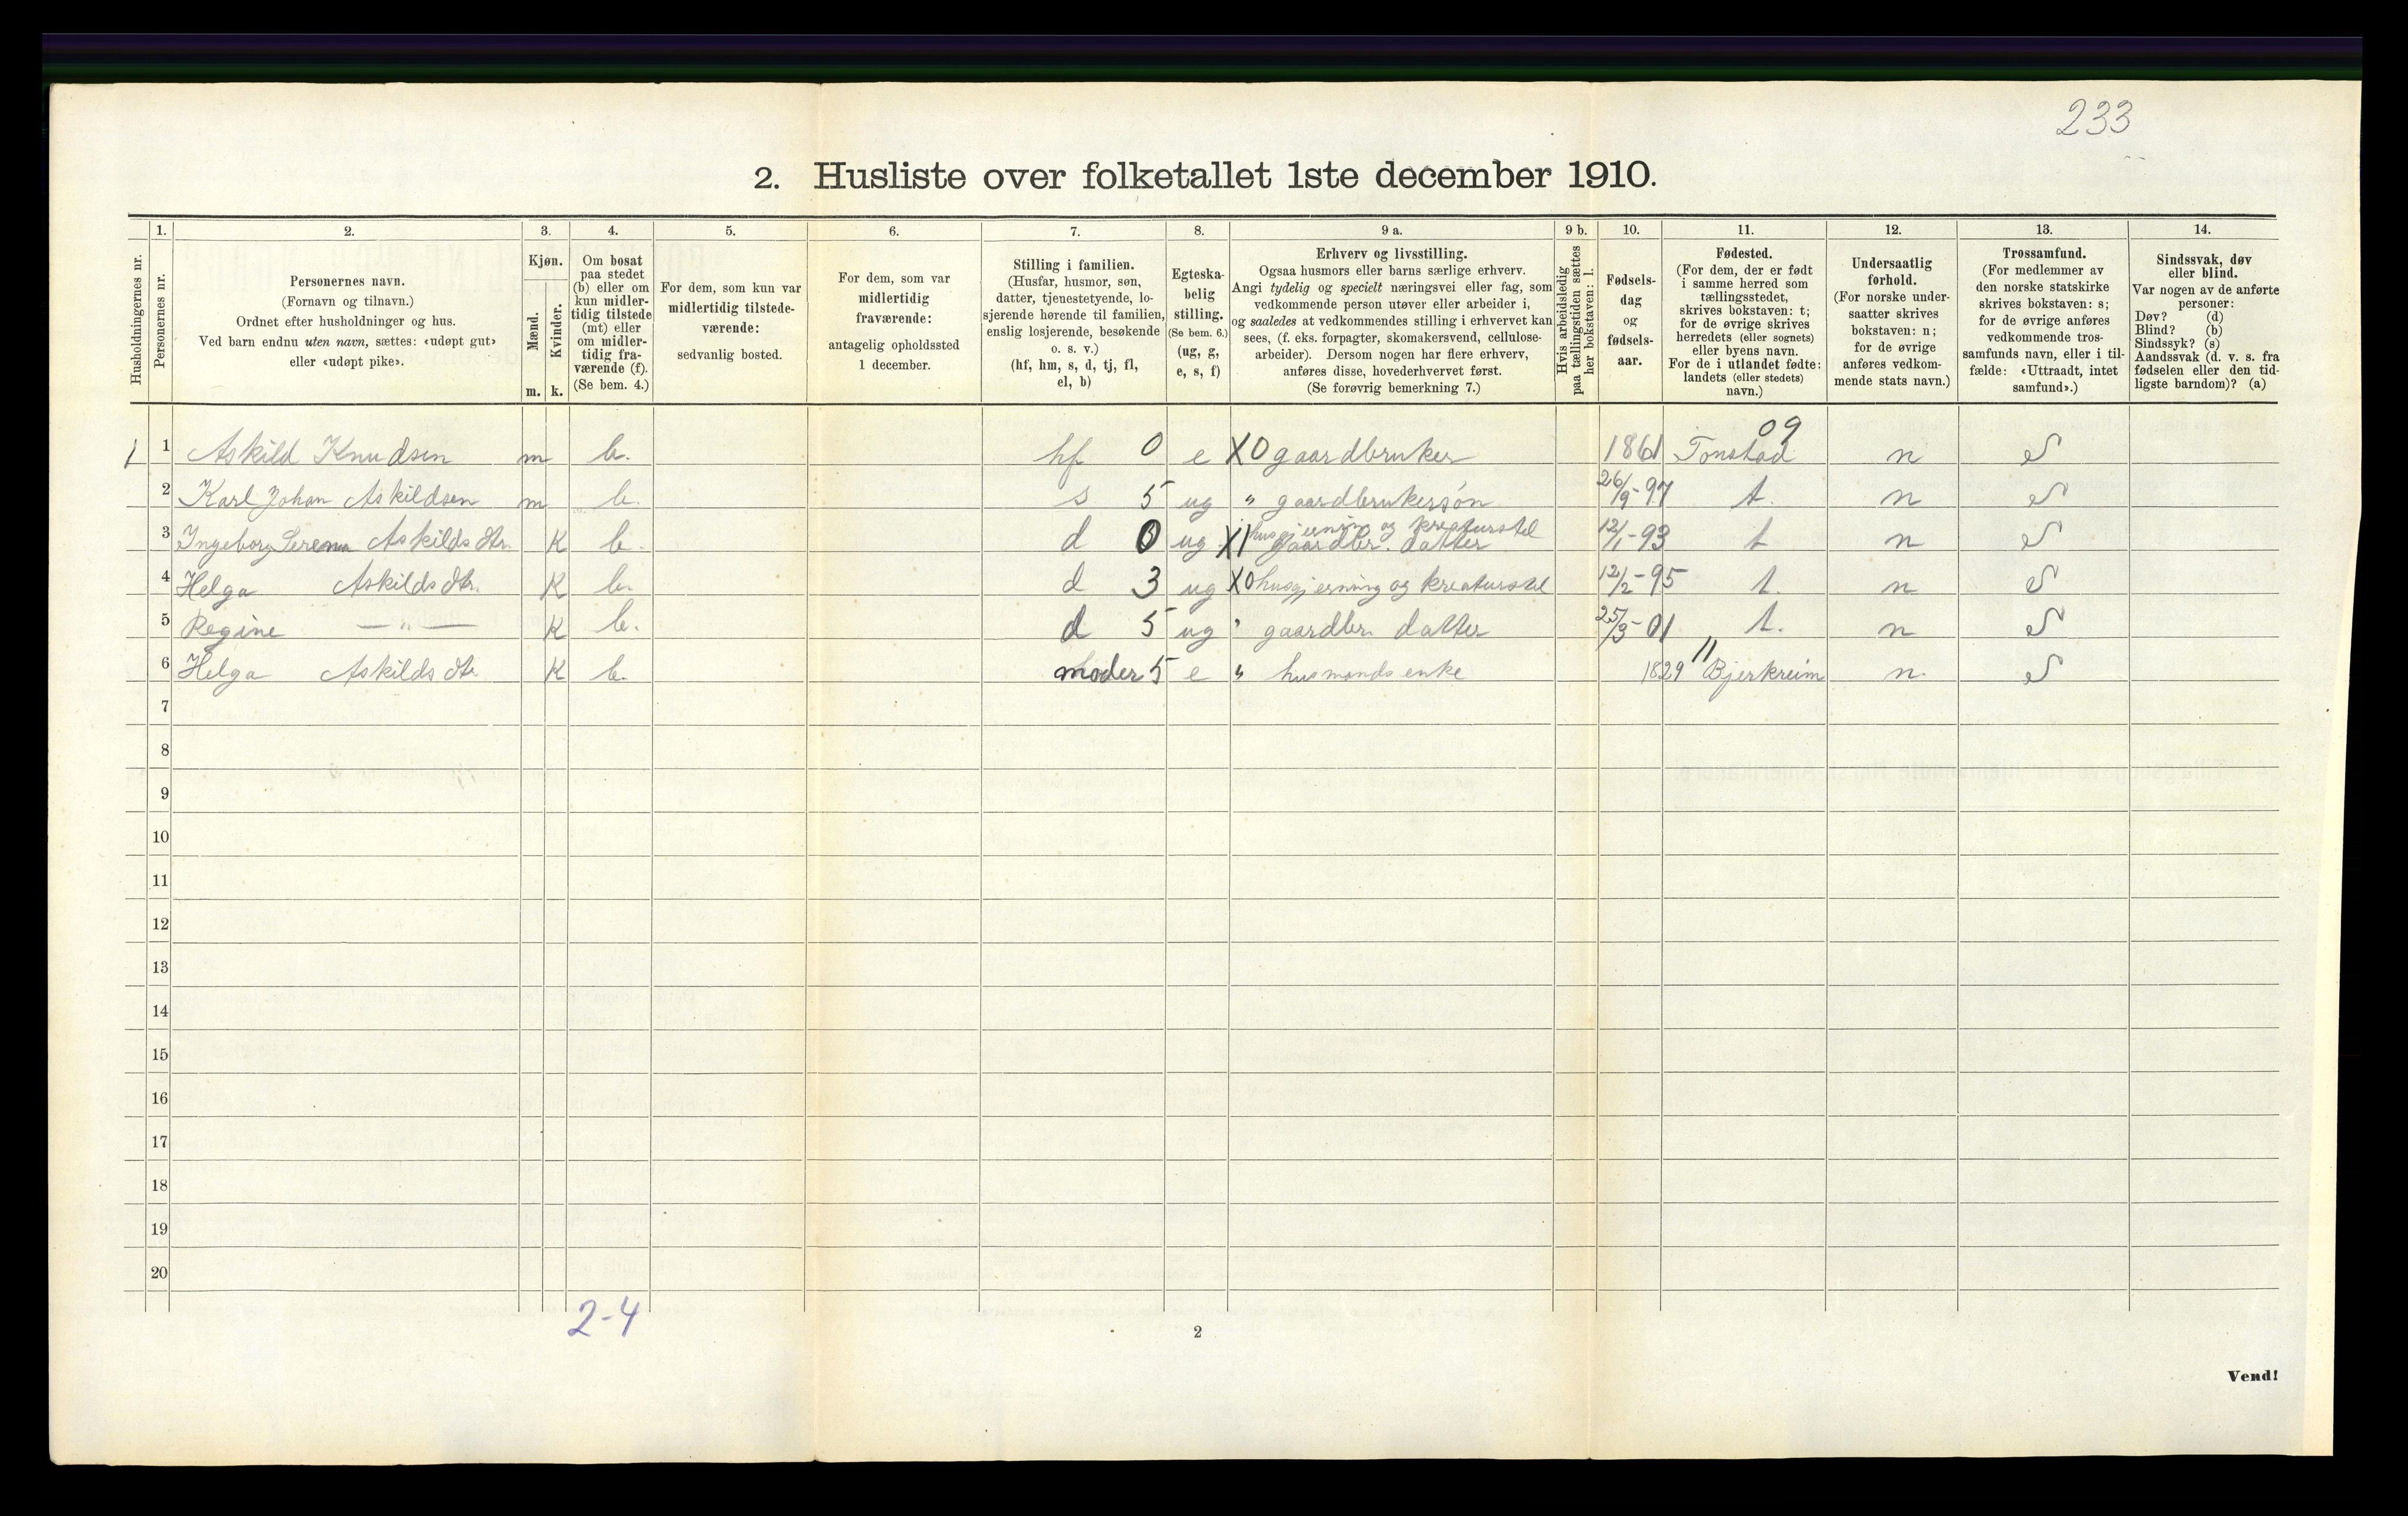 233
2. Husliste over folketallet 1ste december 1910.
Husholdningernes nr.
1.
Personernes nr.
2.
Personernes navn.
(Fornavn og tilnavn.)
Ordnet efter husholdninger og hus.
Ved barn endnu uten navn, sættes: «udøpt gut»
eller «udøpt pike».
3.
Kjøn.
Mænd.
Kvinder.
m. k.
4.
Om bosat
paa stedet
(b) eller om
kun midler-
tidig tilstede
(mt) eller
om midler-
tidig fra-
værende (f).
(Se bem. 4.)
5.
For dem, som kun var
midlertidig tilstede-
værende:
sedvanlig bosted.
6.
For dem, som var
midlertidig
fraværende:
antagelig opholdssted
1 december.
7.
Stilling i familien.
(Husfar, husmor, søn,
datter, tjenestetyende, lo-
sjerende hørende til familien,
enslig losjerende, besøkende
o. s. v.)
(hf, hm, s, d, tj, fl,
el, b)
8.
Egteska-
belig
stilling.
(Se bem. 6.)
(ug, g,
e, s, f)
9 a.
Erhverv og livsstilling.
Ogsaa husmors eller barns særlige erhverv.
Angi tydelig og specielt næringsvei eller fag, som
vedkommende person utøver eller arbeider i,
og saaledes at vedkommendes stilling i erhvervet kan
sees, (f. eks. forpagter, skomakersvend, cellulose-
arbeider). Dersom nogen har flere erhverv,
anføres disse, hovederhvervet først.
(Se forøvrig bemerkning 7.)
9 b.
Hvis arbeidsledig
paa tællingstiden sættes
her bokstaven: l.
10.
Fødsels-
dag
og
fødsels-
aar.
11.
Fødested.
(For dem, der er født
i samme herred som
tællingsstedet,
skrives bokstaven: t;
for de øvrige skrives
herredets (eller sognets)
eller byens navn.
For de i utlandet fødte:
landets (eller stedets)
navn.)
12.
Undersaatlig
forhold.
(For norske under-
saatter skrives
bokstaven: n;
for de øvrige
anføres vedkom-
mende stats navn.)
13.
Trossamfund.
(For medlemmer av
den norske statskirke
skrives bokstaven: s;
for de øvrige anføres
vedkommende tros-
samfunds navn, eller i til-
fælde: «Uttraadt, intet
samfund».)
14.
Sindssvak, døv
eller blind.
Var nogen av de anførte
personer:
Døv? (d)
Blind? (b)
Sindssyk? (s)
Aandssvak (d. v. s. fra
fødselen eller den tid-
ligste barndom)? (a)
09
1 1 Askild Knudsen m b. hf 0 e X0 gaardbruker 1861 Tonstad n S
2 Karl Johan Askildsen m b. s 5 ug " gaardbrukersøn 26/9-97 t. n S
husgjerning og kreaturstel
3 Ingeborg Serena Askildsdtr. K b. d 0 ug X1 gaardbr. datter 12/1-93 t n S
4 Helga Askildsdtr. K b. d 3 ug X0 husgjerning og kreaturstel 12/2-95 t. n S
5 Regine —"— K b. d 5 ug " gaardbr. datter 25/3-01 t. n S
11
6 Helga Askildsdtr K b. moder 5 e " husmands enke 1829 Bjerkreim n. S
7
8
9
10
11
12
13
14
15
16
17
18
19
20
2-4
2
Vend!